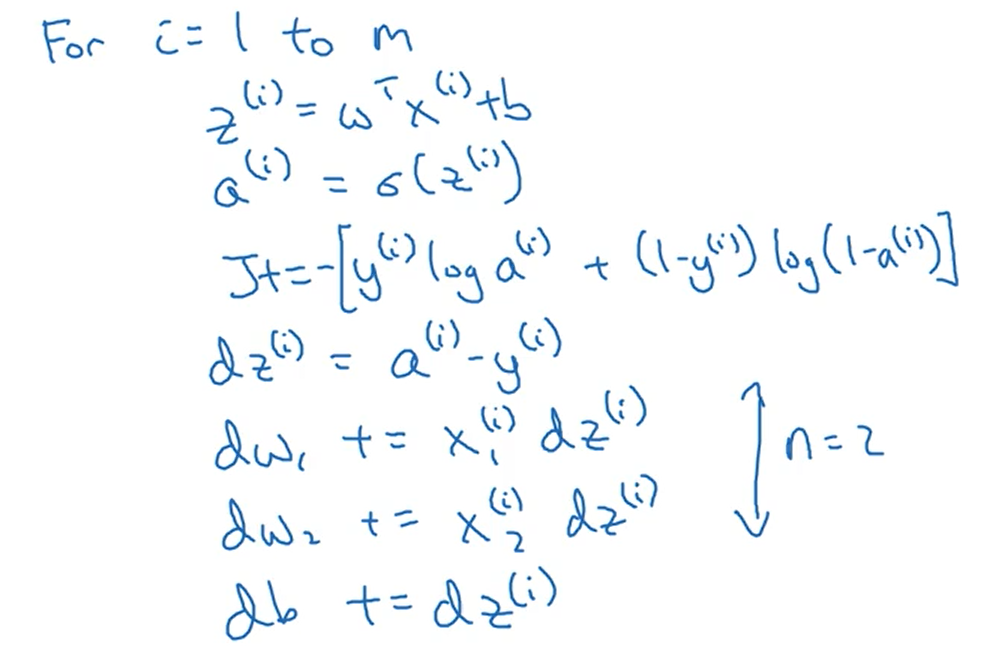 For i = 1 to m
z^(i) = w^T x^(i) + b
a^(i) = σ(z^(i))
J += -[y^(i) log a^(i) + (1-y^(i)) log(1-a^(i))]
dz^(i) = a^(i) - y^(i)
dw₁ += x₁^(i) dz^(i)
n = 2
dw₂ += x₂^(i) dz^(i)
db += dz^(i)